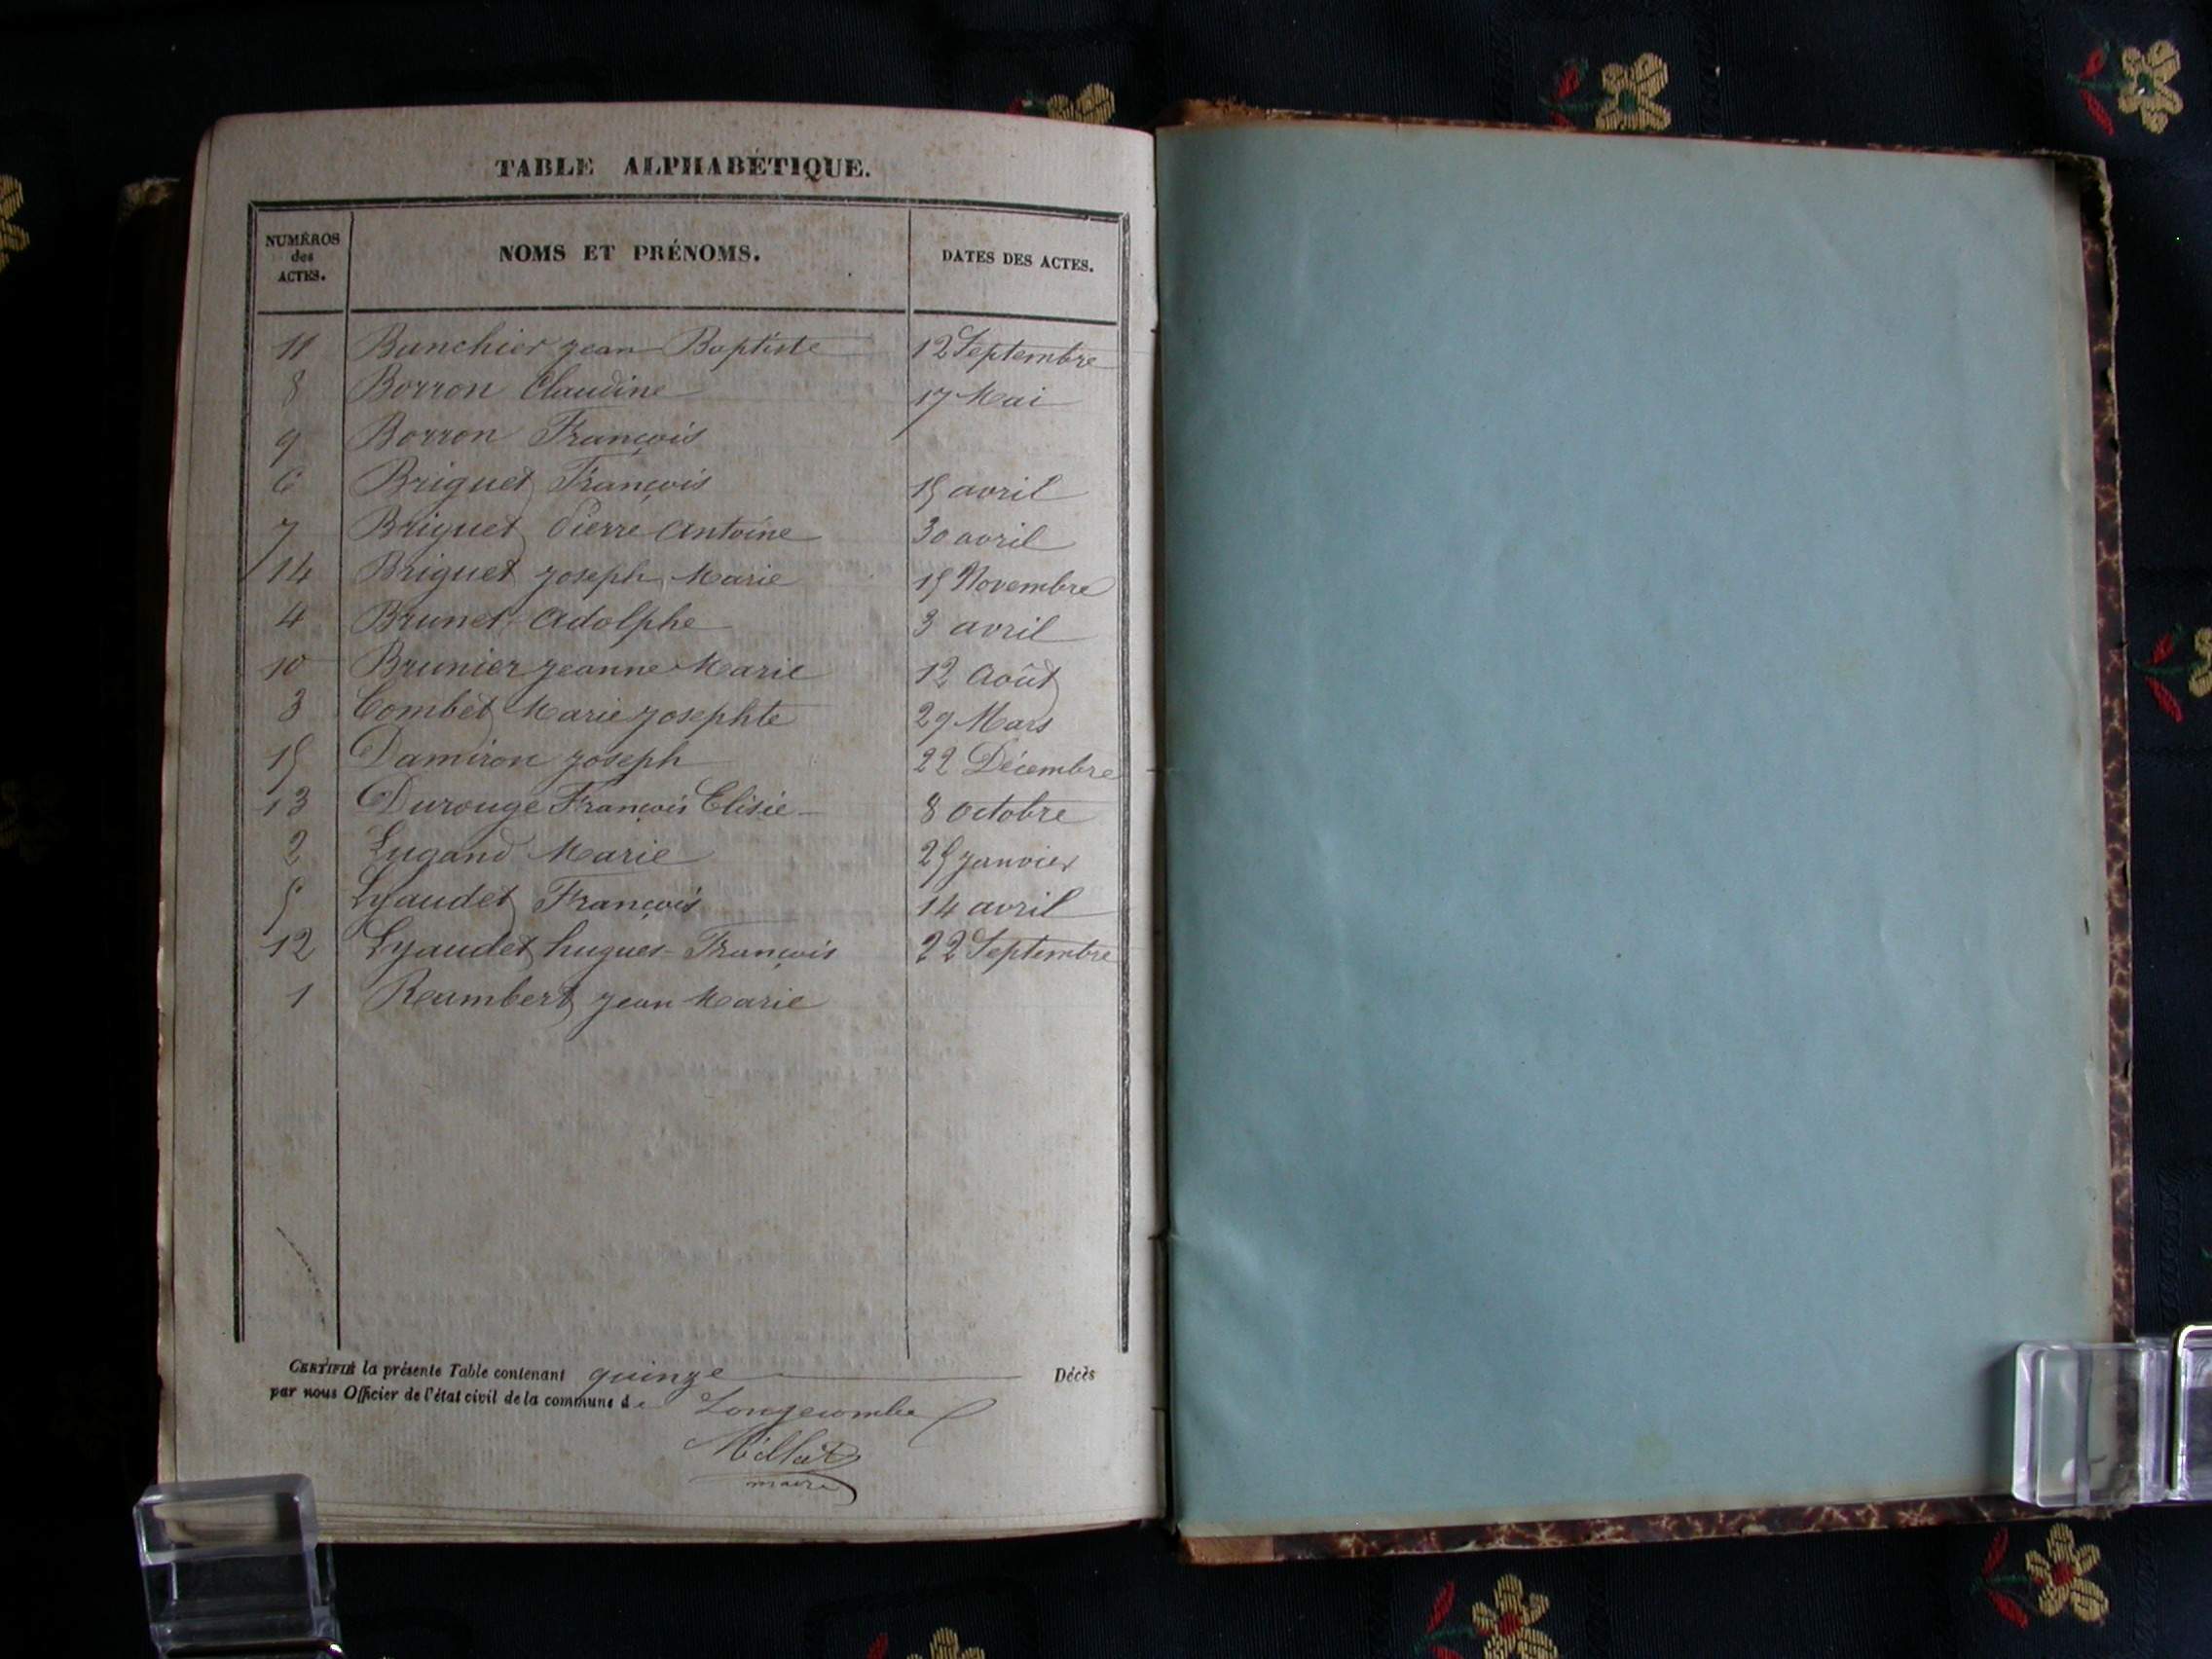 TABLE ALPHABÉTIQUE.
NUMÉROS des ACTES. NOMS ET PRÉNOMS. DATES DES ACTES.
11 Banchier jean Baptiste 12 Septembre
8 Borron Claudine 17 Mai
9 Borron François
6 Briguet François 15 avril
7 Briguet Pierre antoine 30 avril
14 Briguet joseph Marie 15 Novembre
4 Brunet adolphe 3 avril
10 Brunier jeanne Marie 12 Août
3 Combet Marie josephte 29 Mars
15 Damiron joseph 22 Décembre
13 Durouge François Elisie 8 octobre
2 Lugand Marie 25 janvier
5 Lyaudet François 14 avril
12 Lyaudet hugues-François 22 Septembre
1 Reambert jean Marie
CERTIFIÉ la présente Table contenant quinze Décès
par nous Officier de l'état civil de la commune de Longecombe
Millet
maire